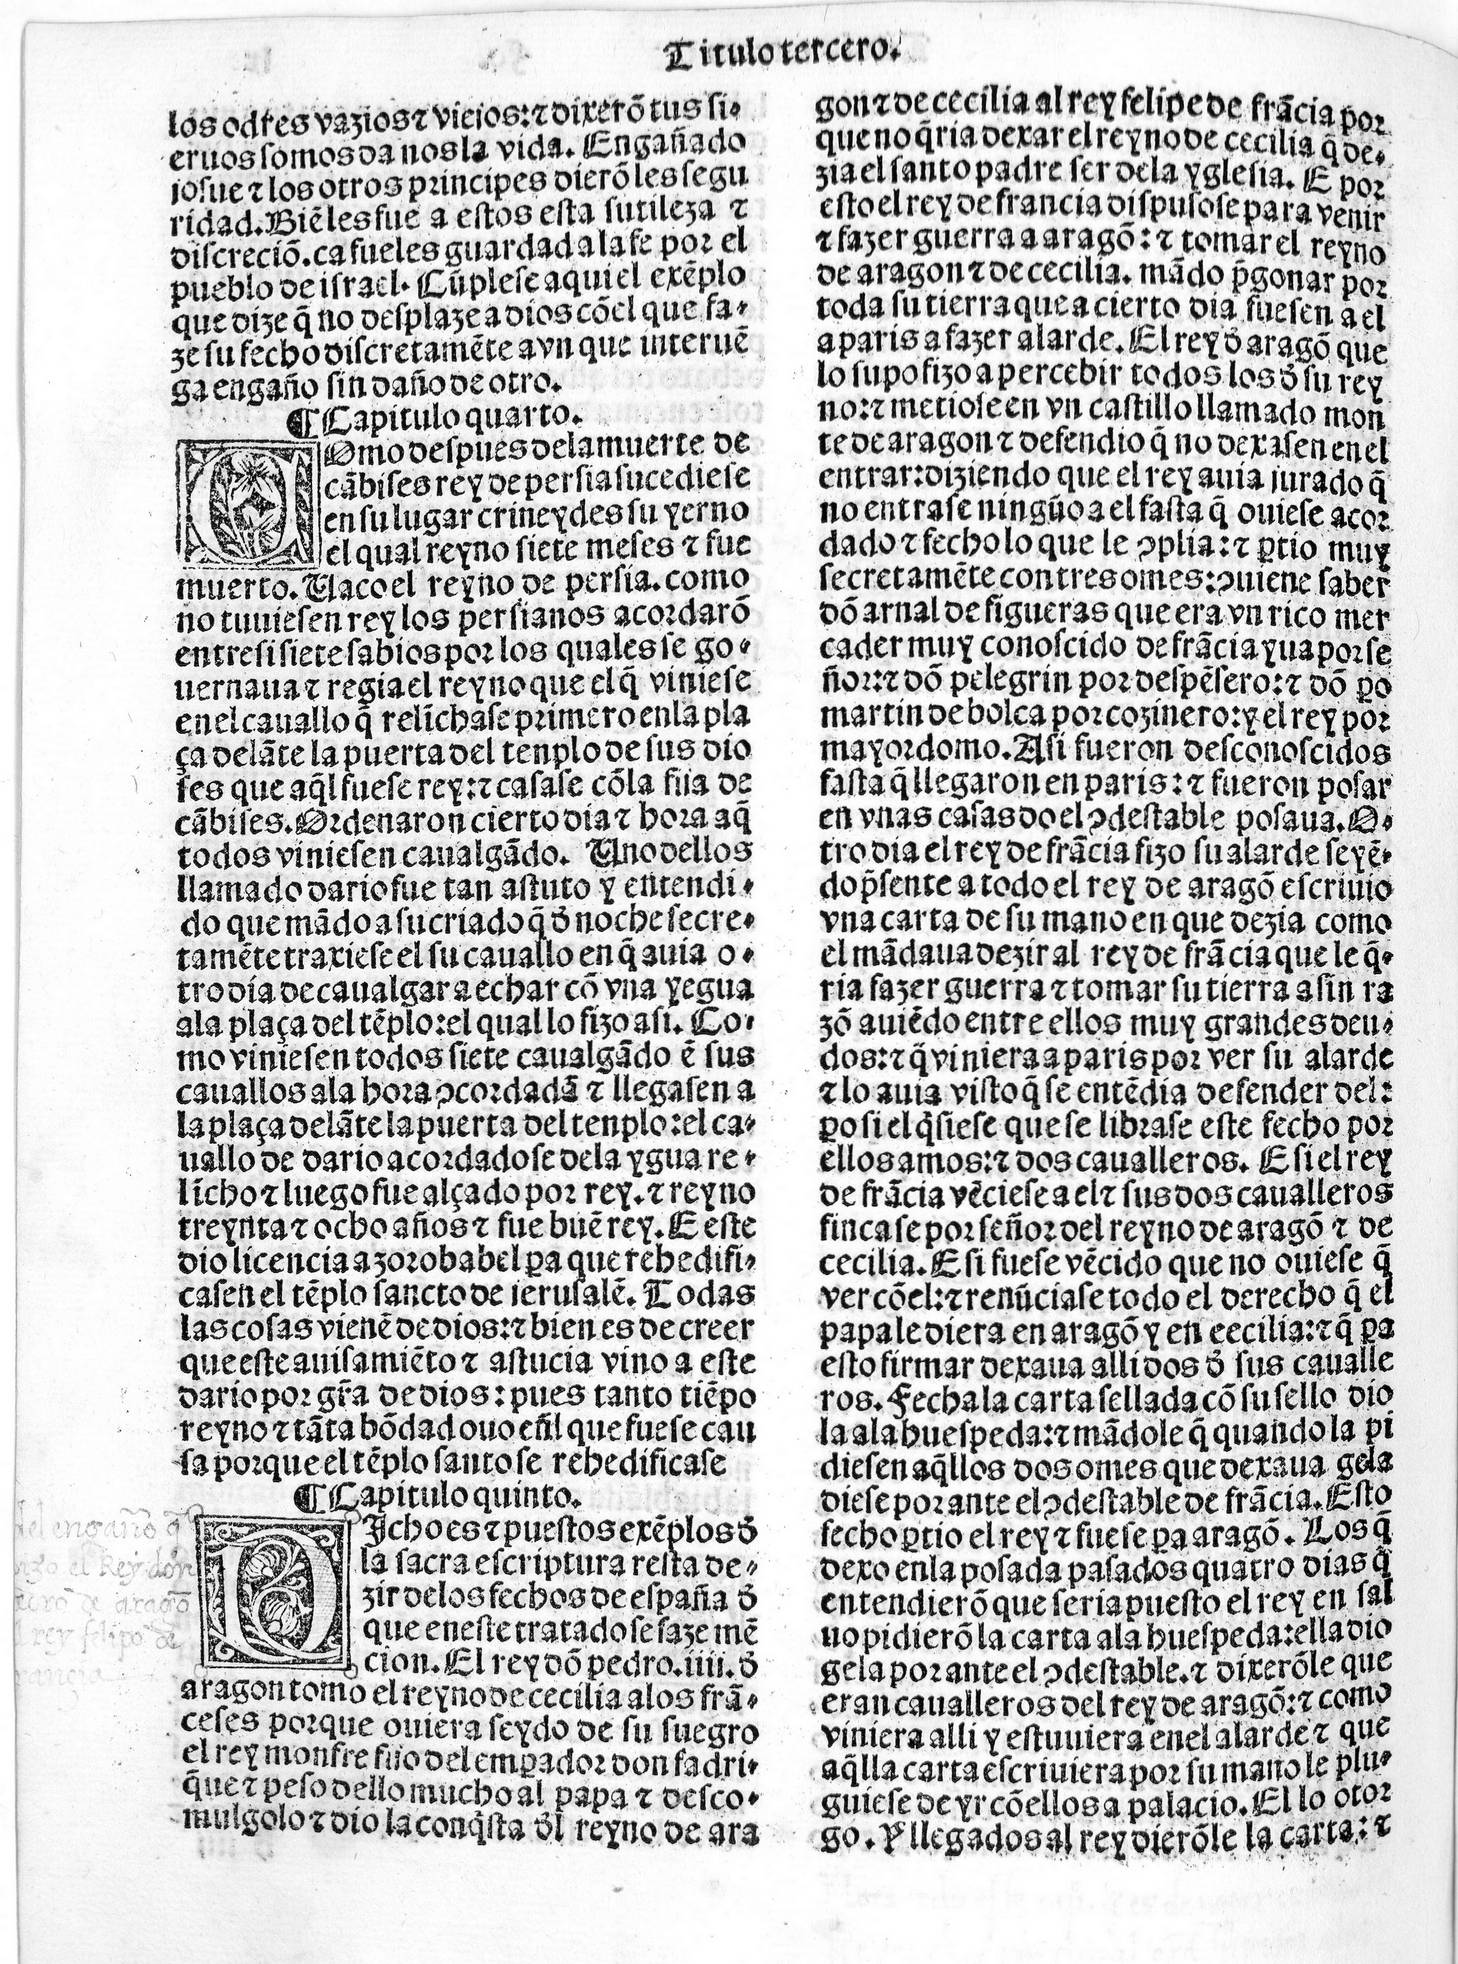 Titulo tercero.
los odres vazios ⁊ viejos:⁊ dixerõ tus si-
eruos somos da nos la vida. Engañado
josue ⁊ los otros principes dierõ les segu
ridad. Biẽ les fue a estos esta sutileza ⁊
discreciõ. ca fueles guardada la fe por el
pueblo de israel. Cũplese aqui el exẽplo
que dize q̃ no desplaze a dios cõ el que fa-
ze su fecho discretamẽte avn que interuẽ
ga engaño sin daño de otro.
¶ Capitulo quarto.
COmo despues dela muerte de
cãbises rey de persia sucediese
en su lugar crineydes su yerno
el qual reyno siete meses ⁊ fue
muerto. Uaco el reyno de persia. como
no tuuiesen rey los persianos acordarõ
entre si siete sabios por los quales se go-
uernaua ⁊ regia el reyno que el q̃ viniese
en el cauallo q̃ relĩchase primero en la pla
ça delãte la puerta del tenplo de sus dio
ses que aq̃l fuese rey:⁊ casase cõ la fija de
cãbises. Ordenaron cierto dia ⁊ hora a q̃
todos viniesen caualgãdo. Uno dellos
llamado dario fue tan astuto y entendi-
do que mãdo a su criado q̃ ð noche secre-
tamẽte traxiese el su cauallo en q̃ auia o-
tro dia de caualgar a echar cõ vna yegua
ala plaça del tẽplo:el qual lo fizo asi. Co-
mo viniesen todos siete caualgãdo ẽ sus
cauallos ala hora ꝯcordada ⁊ llegasen a
la plaça delãte la puerta del tenplo:el ca-
uallo de dario acordadose dela ygua re-
lĩcho ⁊ luego fue alçado por rey. ⁊ reyno
treynta ⁊ ocho años ⁊ fue buẽ rey. E este
dio licencia a zorobabel ꝑa que rehedifi-
casen el tẽplo sancto de ierusalẽ. Todas
las cosas vienẽ de dios:⁊ bien es de creer
que este auisamiẽto ⁊ astucia vino a este
dario por gr̃a de dios: pues tanto tiẽpo
reyno ⁊ tãta bõdad ouo eñl que fuese cau
sa porque el tẽplo santo se rehedificase
¶ Capitulo quinto.
DIcho es ⁊ puestos exẽplos ð
la sacra escriptura resta de-
zir delos fechos de españa ð
que en este tratado se faze mẽ
cion. El rey dõ pedro .iiij. ð
aragon tomo el reyno de cecilia alos frã-
ceses porque ouiera seydo de su suegro
el rey monfre fijo del emꝑador don fadri-
q̃ue ⁊ peso dello mucho al papa ⁊ desco-
mulgolo ⁊ dio la conq̃sta ðl reyno de ara
del engaño q̃
hizo el Rey dõ
de aragõ
rey felipo de
gon ⁊ de cecilia al rey felipe de frãcia por
que no q̃ria dexar el reyno de cecilia q̃ de-
zia el santo padre ser dela yglesia. E por
esto el rey de francia dispusose para venir
⁊ fazer guerra a aragõ:⁊ tomar el reyno
de aragon ⁊ de cecilia. mãdo p̃gonar por
toda su tierra que a cierto dia fuesen a el
a paris a fazer alarde. El rey ð aragõ que
lo supo fizo apercebir todos los ð su rey
no:⁊ metiose en vn castillo llamado mon
te de aragon ⁊ defendio q̃ no dexasen en el
entrar:diziendo que el rey auia jurado q̃
no entrase ningũo a el fasta q̃ ouiese acor
dado ⁊ fecho lo que le ꝯplia:⁊ ꝑtio muy
secretamẽte con tres omes:ꝯuiene saber
dõ arnal de figueras que era vn rico mer
cader muy conoscido de frãcia yua por se
ñor:⁊ dõ pelegrin por despẽsero:⁊ dõ ꝑo
martin de bolea por cozinero:y el rey por
mayordomo. Asi fueron desconoscidos
fasta q̃ llegaron en paris:⁊ fueron posar
en vnas casas do el ꝯdestable posaua. O-
tro dia el rey de frãcia fizo su alarde seyẽ-
do p̃sente a todo el rey de aragõ escriuio
vna carta de su mano en que dezia como
el mãdaua dezir al rey de frãcia que le q̃-
ria fazer guerra ⁊ tomar su tierra a sin ra
zõ auiẽdo entre ellos muy grandes deu-
dos:⁊ q̃ viniera a paris por ver su alarde
⁊ lo auia visto q̃ se entẽdia defender del:
ꝑo si el q̃siese que se librase este fecho por
ellos amos:⁊ dos caualleros. E si el rey
de frãcia vẽciese a el ⁊ sus dos caualleros
fincase por señor del reyno de aragõ ⁊ de
cecilia. E si fuese vẽcido que no ouiese q̃
ver cõ el:⁊ renũciase todo el derecho q̃ el
papa le diera en aragõ y en cecilia:⁊ q̃ ꝑa
esto firmar dexaua alli dos ð sus caualle
ros. Fecha la carta sellada cõ su sello dio
la ala huespeda:⁊ mãdole q̃ quando la pi
diesen aq̃llos dos omes que dexaua gela
diese por ante el ꝯdestable de frãcia. Esto
fecho ꝑtio el rey ⁊ fuese ꝑa aragõ. Los q̃
dexo en la posada pasados quatro dias q̃
entendierõ que seria puesto el rey en sal
uo pidierõ la carta ala huespeda:ella dio
gela por ante el ꝯdestable. ⁊ dixerõle que
eran caualleros del rey de aragõ:⁊ como
viniera alli y estuuiera en el alarde ⁊ que
aq̃lla carta escriuiera por su mano le plu-
guiese de yr cõ ellos a palacio. El lo otor
go. Y llegados al rey dierõle la carta: ⁊